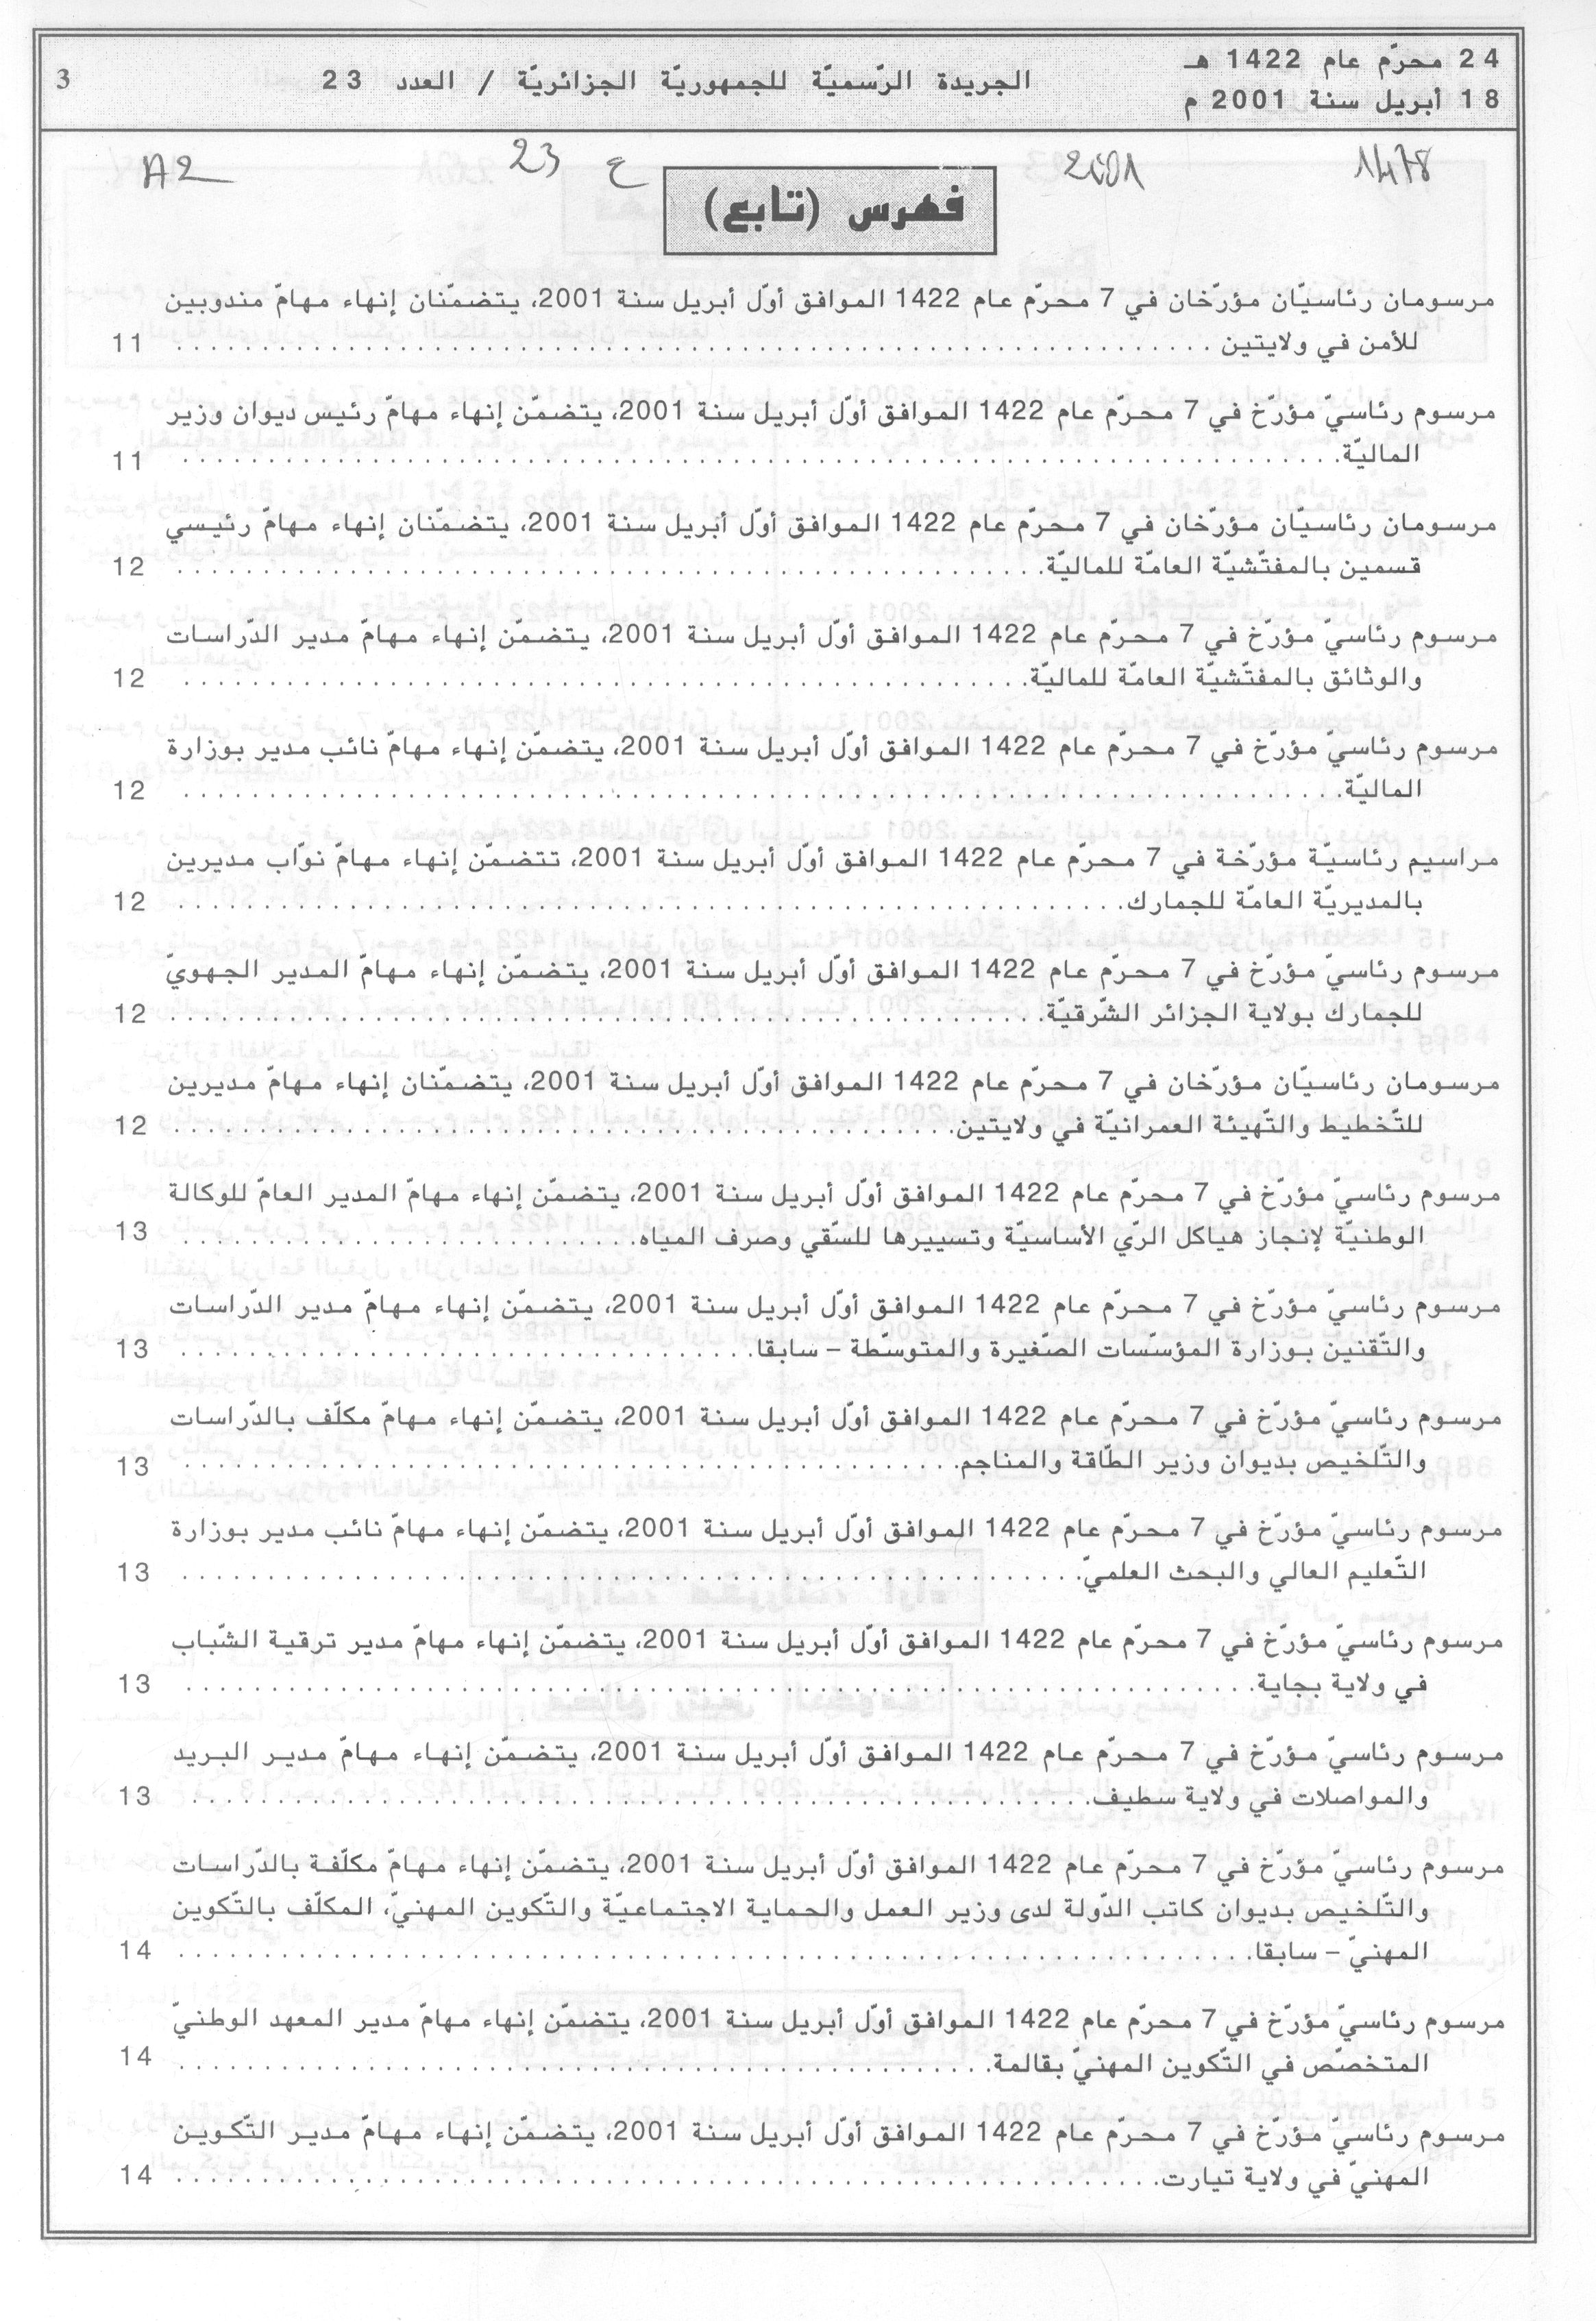 24 محرّم عام 1422 هـ
18 أبريل سنة 2001 م
الجريدة الرّسميّة للجمهوريّة الجزائريّة / العدد 23
3
1478 2001 ع 23 A2
فهرس (تابع)
مرسومان رئاسيّان مؤرّخان في 7 محرّم عام 1422 الموافق أوّل أبريل سنة 2001، يتضمّنان إنهاء مهامّ مندوبين
للأمن في ولايتين 11
مرسوم رئاسيّ مؤرّخ في 7 محرّم عام 1422 الموافق أوّل أبريل سنة 2001، يتضمّن إنهاء مهامّ رئيس ديوان وزير
الماليّة. 11
مرسومان رئاسيّان مؤرّخان في 7 محرّم عام 1422 الموافق أوّل أبريل سنة 2001، يتضمّنان إنهاء مهامّ رئيسي
قسمين بالمفتّشيّة العامّة للماليّة. 12
مرسوم رئاسيّ مؤرّخ في 7 محرّم عام 1422 الموافق أوّل أبريل سنة 2001، يتضمّن إنهاء مهامّ مدير الدّراسات
والوثائق بالمفتّشيّة العامّة للماليّة. 12
مرسوم رئاسيّ مؤرّخ في 7 محرّم عام 1422 الموافق أوّل أبريل سنة 2001، يتضمّن إنهاء مهامّ نائب مدير بوزارة
الماليّة. 12
مراسيم رئاسيّة مؤرّخة في 7 محرّم عام 1422 الموافق أوّل أبريل سنة 2001، تتضمّن إنهاء مهامّ نوّاب مديرين
بالمديريّة العامّة للجمارك. 12
مرسوم رئاسيّ مؤرّخ في 7 محرّم عام 1422 الموافق أوّل أبريل سنة 2001، يتضمّن إنهاء مهامّ المدير الجهويّ
للجمارك بولاية الجزائر الشّرقيّة. 12
مرسومان رئاسيّان مؤرّخان في 7 محرّم عام 1422 الموافق أوّل أبريل سنة 2001، يتضمّنان إنهاء مهامّ مديرين
للتّخطيط والتّهيئة العمرانيّة في ولايتين. 12
مرسوم رئاسيّ مؤرّخ في 7 محرّم عام 1422 الموافق أوّل أبريل سنة 2001، يتضمّن إنهاء مهامّ المدير العامّ للوكالة
الوطنيّة لإنجاز هياكل الرّي الأساسيّة وتسييرها للسّقي وصرف المياه. 13
مرسوم رئاسيّ مؤرّخ في 7 محرّم عام 1422 الموافق أوّل أبريل سنة 2001، يتضمّن إنهاء مهامّ مدير الدّراسات
والتّقنين بوزارة المؤسّسات الصّغيرة والمتوسّطة – سابقا. 13
مرسوم رئاسيّ مؤرّخ في 7 محرّم عام 1422 الموافق أوّل أبريل سنة 2001، يتضمّن إنهاء مهامّ مكلّف بالدّراسات
والتّلخيص بديوان وزير الطّاقة والمناجم. 13
مرسوم رئاسيّ مؤرّخ في 7 محرّم عام 1422 الموافق أوّل أبريل سنة 2001، يتضمّن إنهاء مهامّ نائب مدير بوزارة
التّعليم العالي والبحث العلميّ. 13
مرسوم رئاسيّ مؤرّخ في 7 محرّم عام 1422 الموافق أوّل أبريل سنة 2001، يتضمّن إنهاء مهامّ مدير ترقية الشّباب
في ولاية بجاية. 13
مرسوم رئاسيّ مؤرّخ في 7 محرّم عام 1422 الموافق أوّل أبريل سنة 2001، يتضمّن إنهاء مهامّ مدير البريد
والمواصلات في ولاية سطيف. 13
مرسوم رئاسيّ مؤرّخ في 7 محرّم عام 1422 الموافق أوّل أبريل سنة 2001، يتضمّن إنهاء مهامّ مكلّفة بالدّراسات
والتّلخيص بديوان كاتب الدّولة لدى وزير العمل والحماية الاجتماعيّة والتّكوين المهنيّ، المكلّف بالتّكوين
المهنيّ – سابقا. 14
مرسوم رئاسيّ مؤرّخ في 7 محرّم عام 1422 الموافق أوّل أبريل سنة 2001، يتضمّن إنهاء مهامّ مدير المعهد الوطنيّ
المتخصّص في التّكوين المهنيّ بقالمة. 14
مرسوم رئاسيّ مؤرّخ في 7 محرّم عام 1422 الموافق أوّل أبريل سنة 2001، يتضمّن إنهاء مهامّ مدير التّكوين
المهنيّ في ولاية تيارت. 14